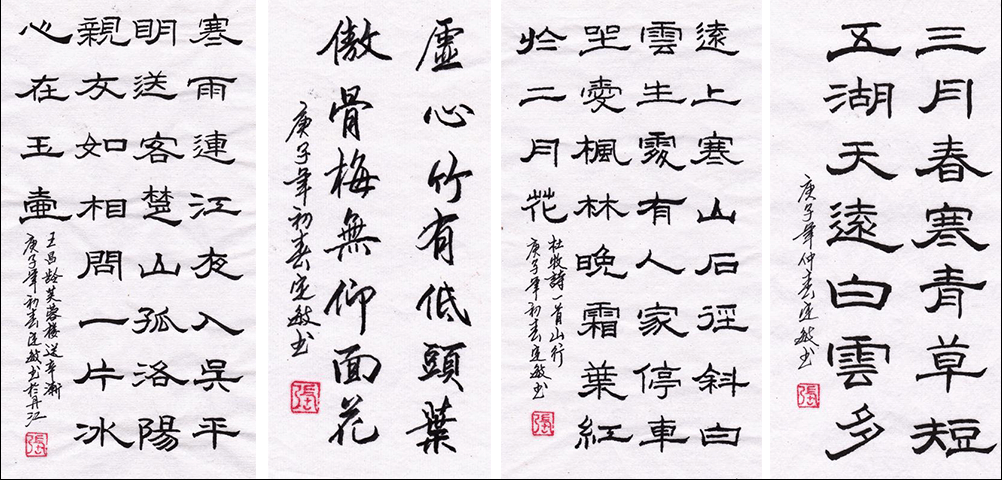 三月春寒青草短
五湖天遠白雲多
庚子年仲春定敏书
張
遠上寒山石徑斜白
雲生處有人家停車
坐愛楓林晚霜葉紅
於二月花
杜牧詩一首山行
庚子年初春定敏书
張
虛心竹有低頭葉
傲骨梅無仰面花
庚子年初春定敏书
張
寒雨連江夜入吳平
明送客楚山孤洛陽
親友如相問一片冰
心在玉壺
王昌龄芙蓉樓送辛渐
庚子年初春定敏书於丹江
張